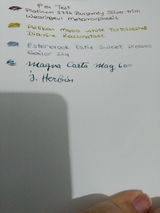 Pen Test
Platinum 3776 Burgundy Silver trim
Wearingeul Metamorphosis
Pelikan M400 White Tortoiseshell
Diamine
Esterbrook Estie Sweet Dreams
Sailor 224
Magna Carta Mag 600
J. Herbin